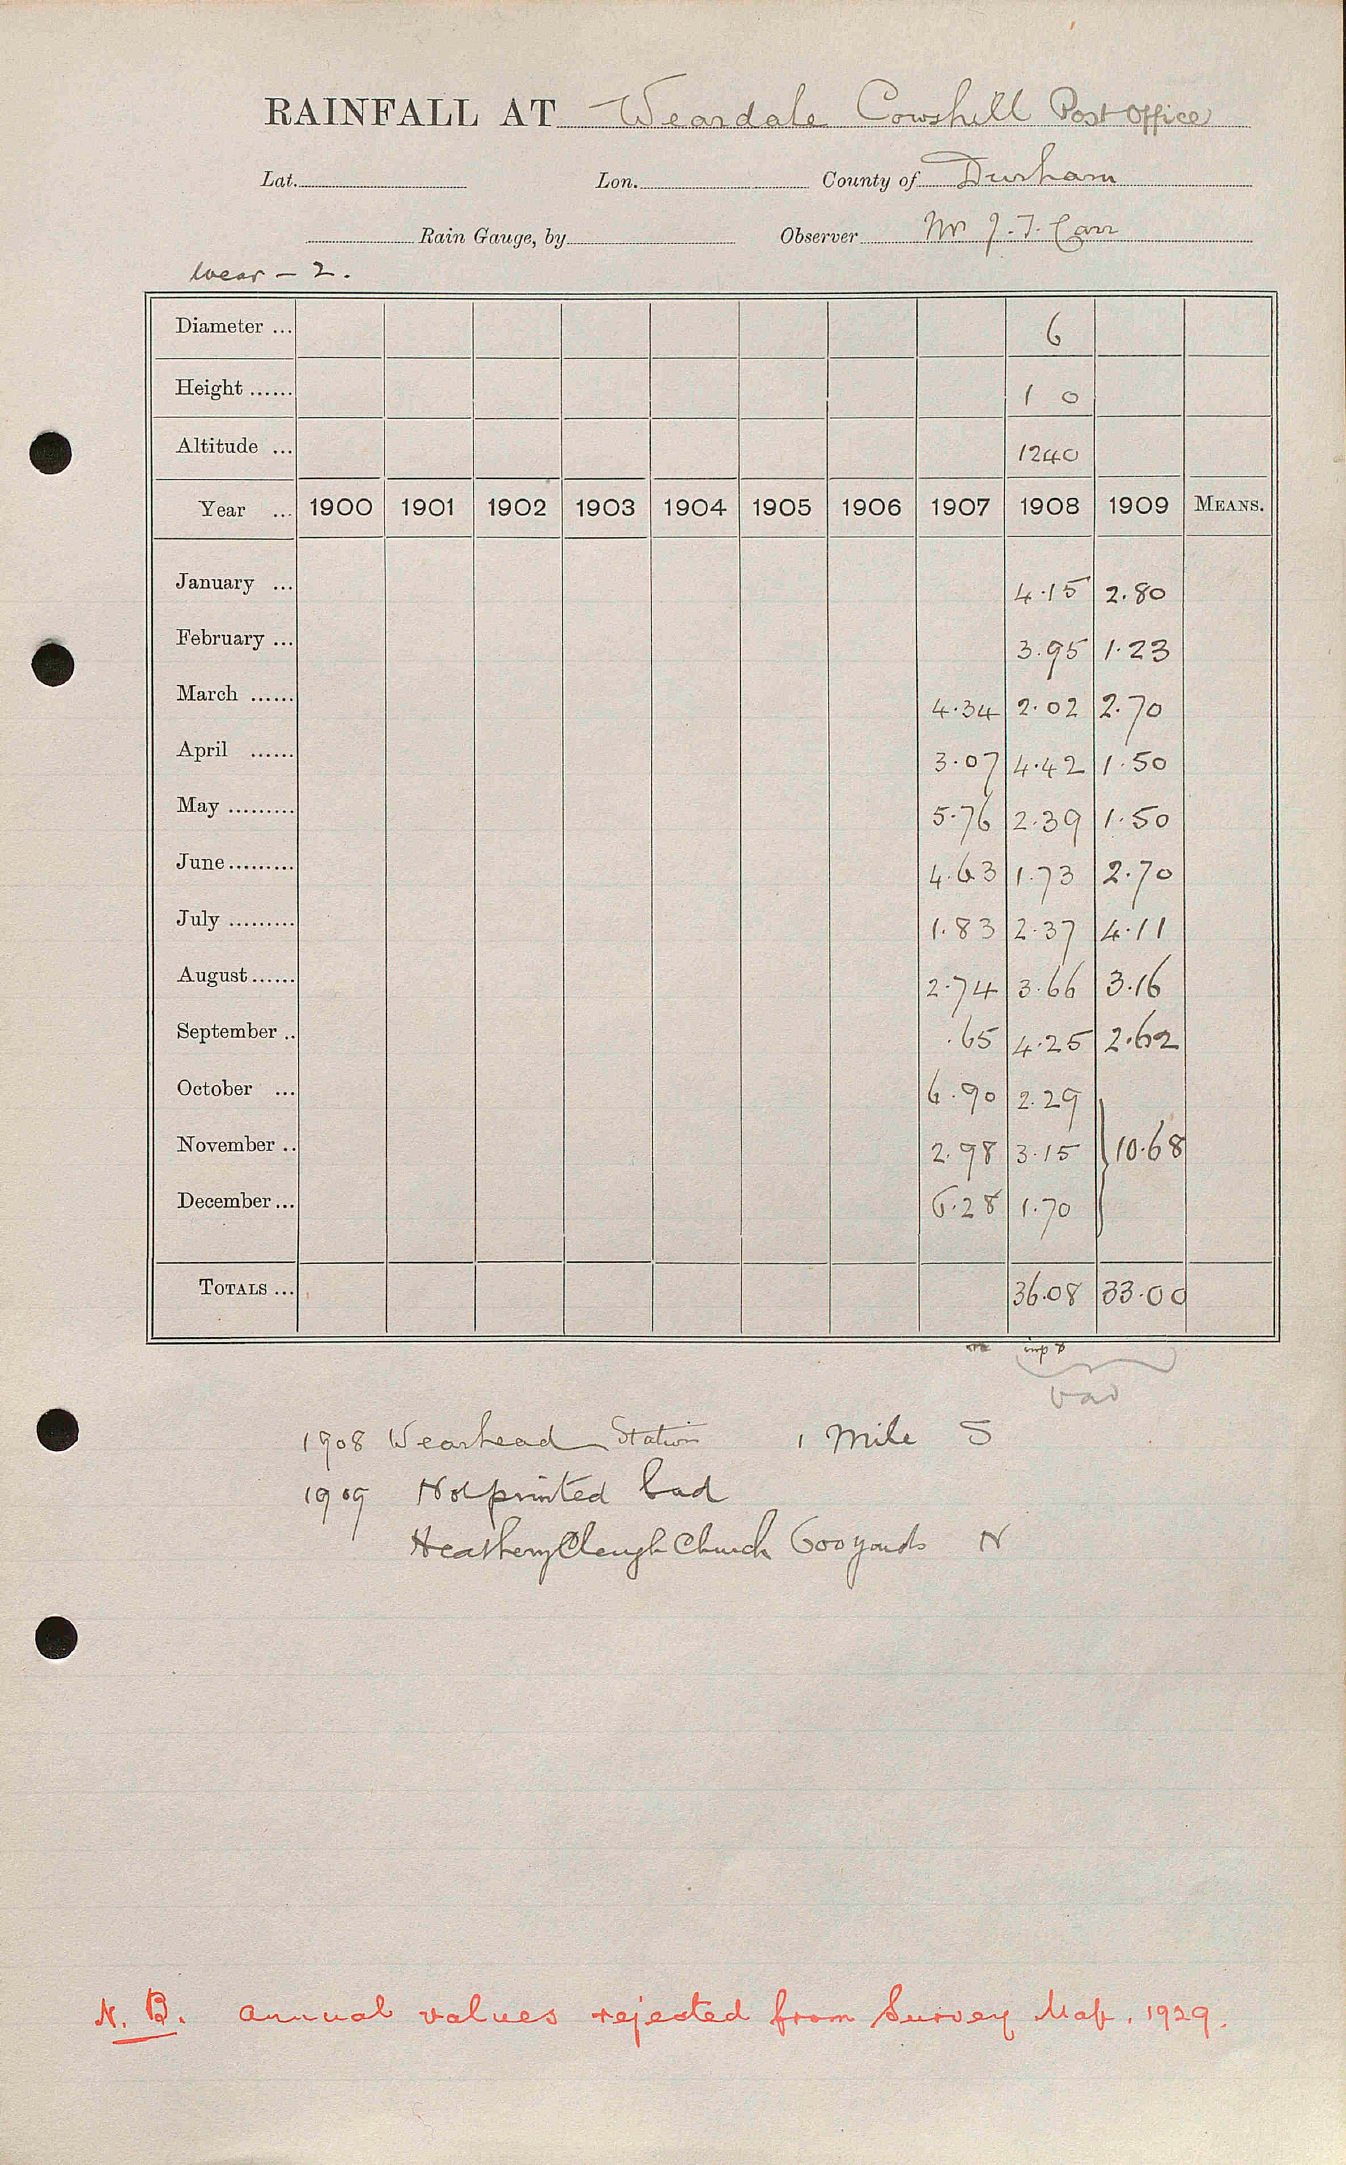 RAINFALL AT Weardale Cowshill Post Office
Lat. Lon. County of Durham
Rain Gauge, by Observer Mr J. T. Carr
Wear - 2.
Diameter ... 6
Height ...... 1 0
Altitude ... 1240
Year ... 1900 1901 1902 1903 1904 1905 1906 1907 1908 1909 MEANS.
January ... 4.15 2.80
February ... 3.95 1.23
March ...... 4.34 2.02 2.70
April ...... 3.07 4.42 1.50
May ......... 5.76 2.39 1.50
June ......... 4.63 1.73 2.70
July ......... 1.83 2.37 4.11
August ...... 2.74 3.66 3.16
September .. .65 4.25 2.62
October ... 6.90 2.29
November .. 2.98 3.15 } 10.68
December ... 6.28 1.70
TOTALS ... 36.08 33.00
bad
1908 Wearhead Station 1 Mile S
1909 Not printed bad
Heathery Cleugh Church 600 yards N
N. B. annual values rejected from Survey Map. 1929.